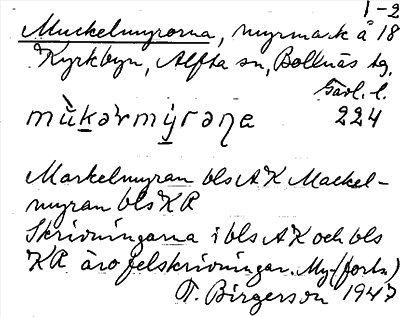 1-2
Muckelmyrorna, myrmark å 18
Kyrkbyn, Alfta sn, Bollnäs tg.
Gävl. l.
mùkərmýrəɳa 224
Markelmyran bls AK Mackel-
myran bls KP
Skrivningarna i bls AK och bls
KP äro felskrivningar. My-(forts)
T. Birgerson 1947